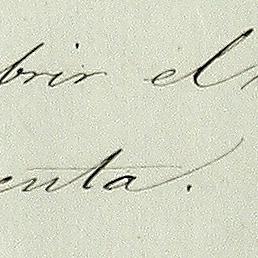 brir el
enta.